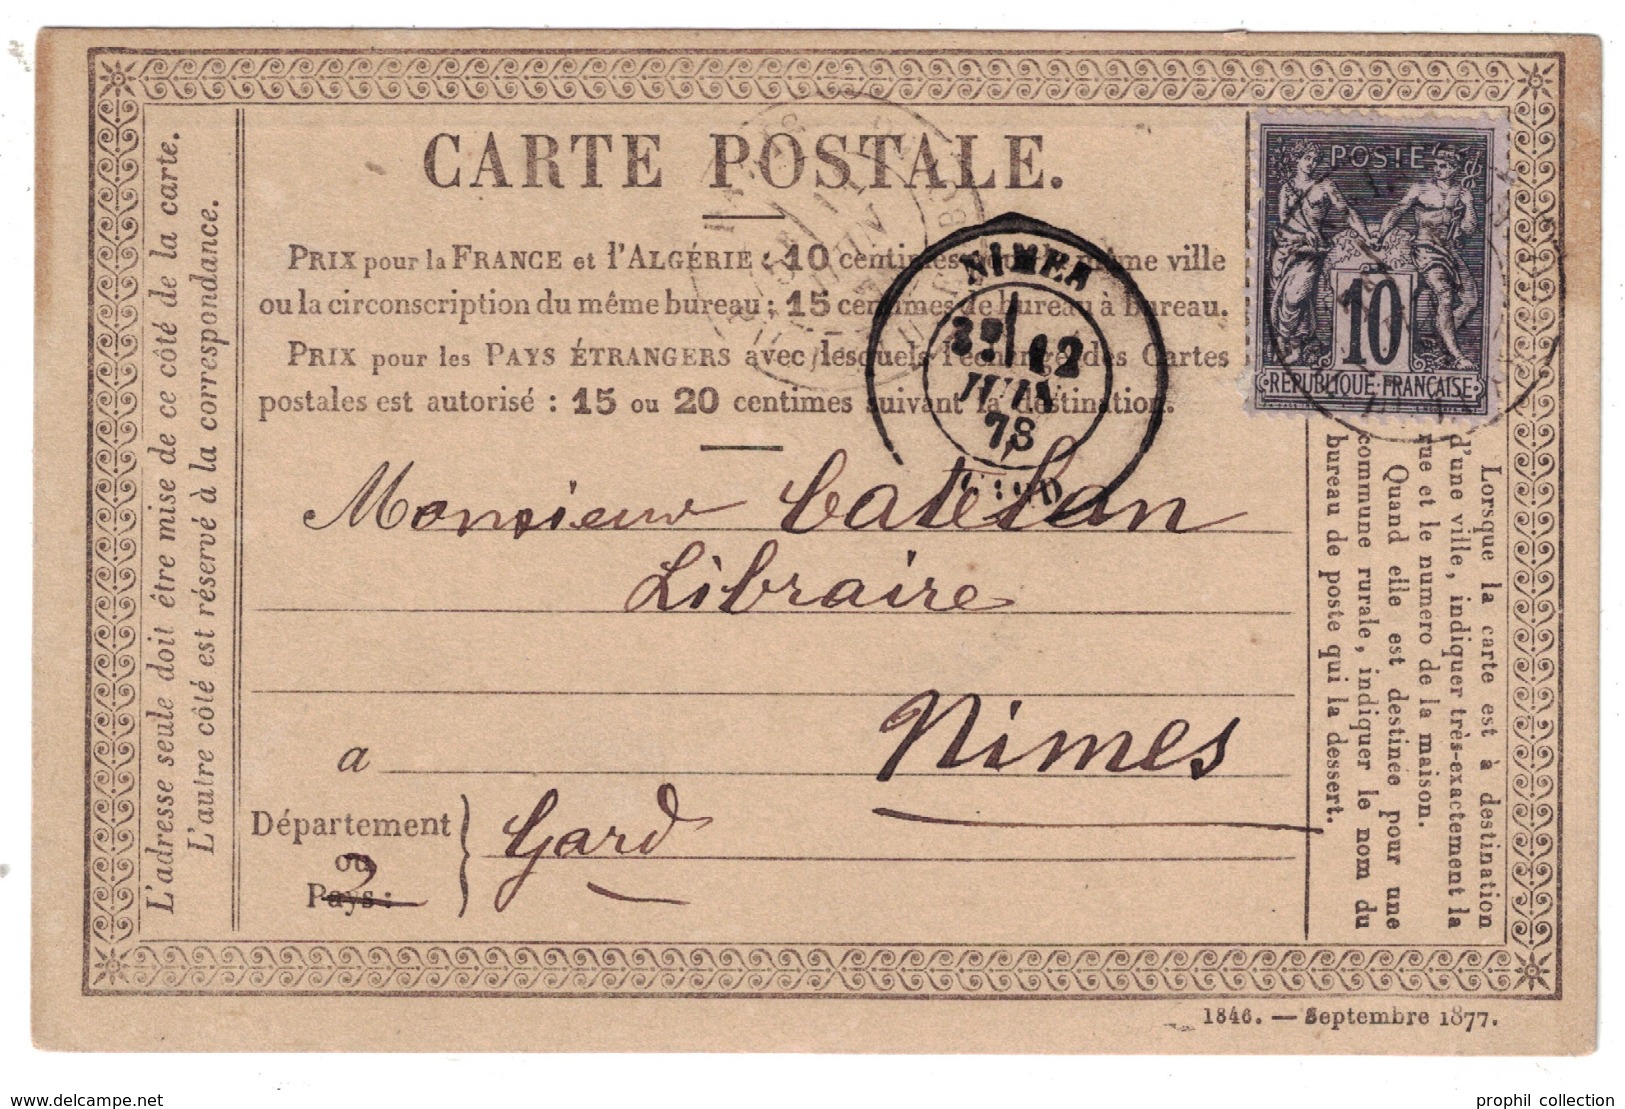 CARTE POSTALE.
PRIX pour la FRANCE et l'ALGÉRIE : 10 centimes même ville
ou la circonscription du même bureau ; 15 centimes de bureau à bureau.
PRIX pour les PAYS ÉTRANGERS avec lesquels l'échange des Cartes
postales est autorisé : 15 ou 20 centimes suivant la destination.
L'adresse seule doit être mise de ce côté de la carte.
L'autre côté est réservé à la correspondance.
POSTE
10
RÉPUBLIQUE FRANÇAISE
NIMES
12
JUIN
78
PARIS
JUIN
Monsieur Catelan
Libraire
a Nimes
Département
ou
Pays :
Gard
2
Lorsque la carte est à destination
d'une ville, indiquer très-exactement la
rue et le numero de la maison.
Quand elle est destinée pour une
commune rurale, indiquer le nom du
bureau de poste qui la dessert.
1846. — Septembre 1877.
www.delcampe.net
prophil collection